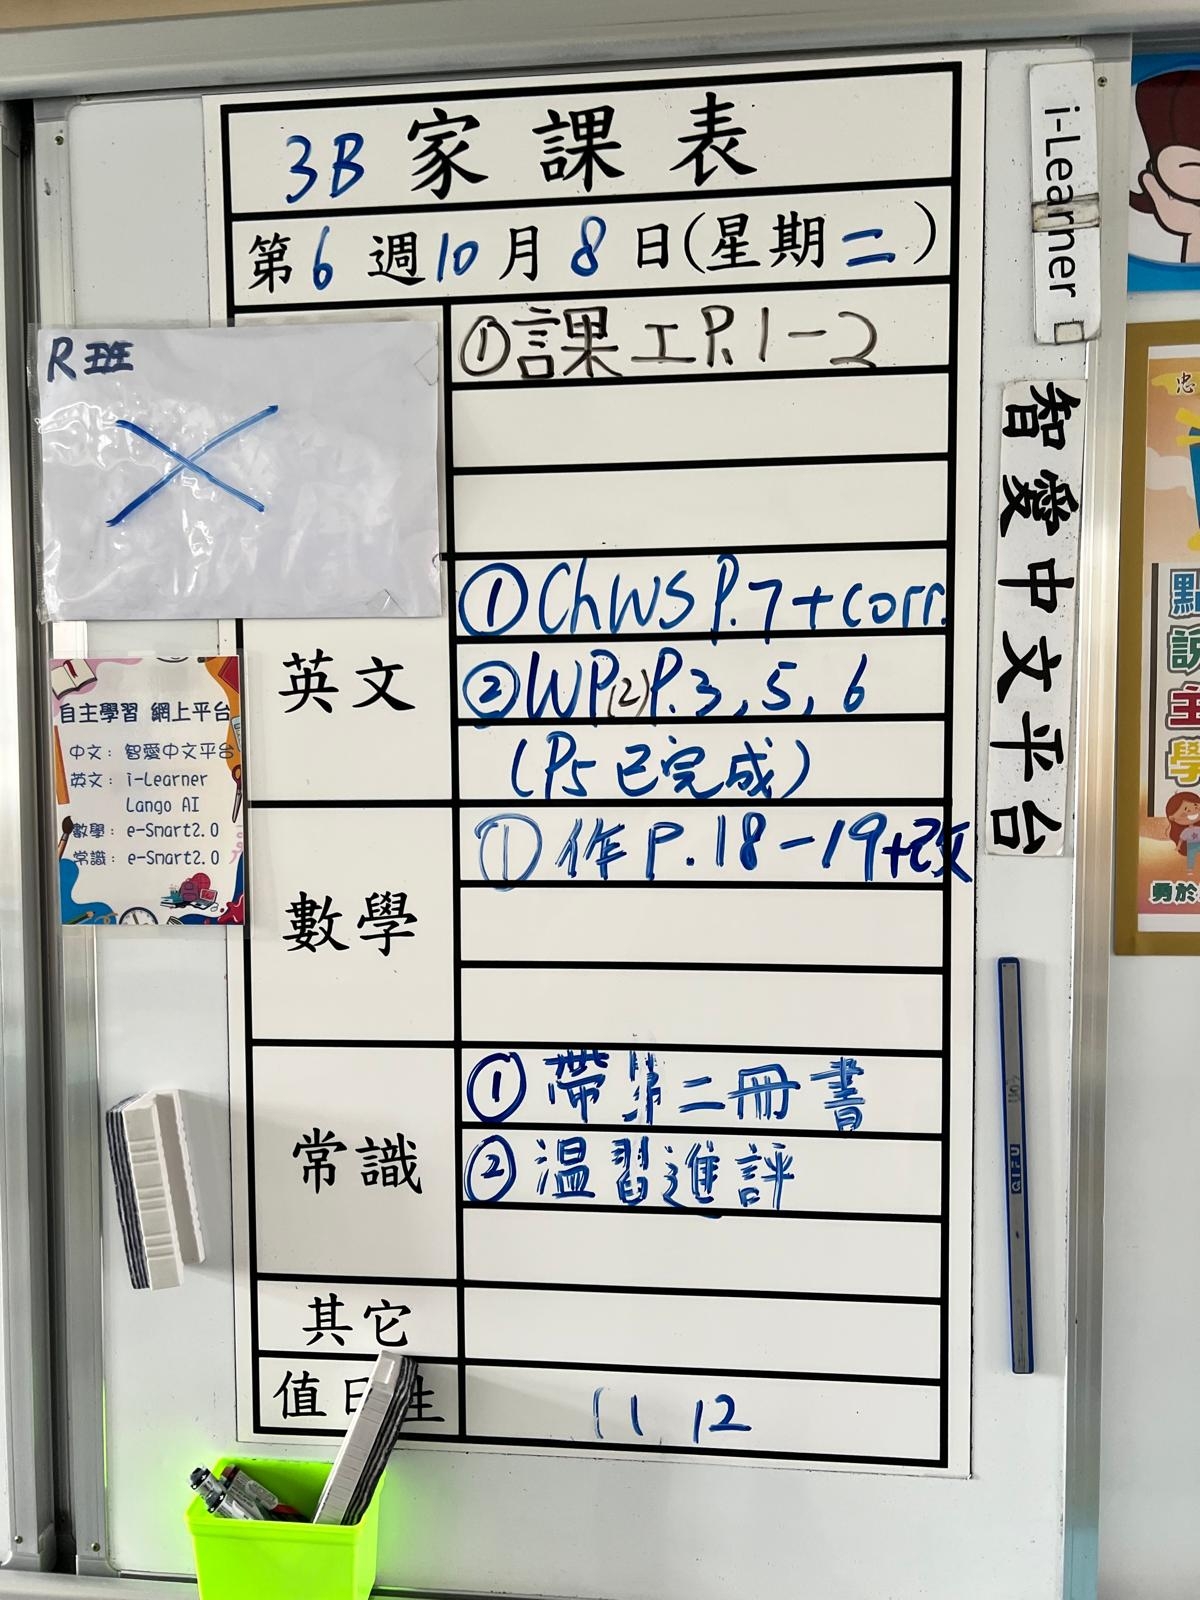 3B 家課表
第 6 週 10 月 8 日(星期 二)
R班
①課工P.1-2
英文
①ChWS P.7+corr.
②WP(2)P.3,5,6
(P5已完成)
數學
①作P.18-19+改
常識
①帶第二冊書
②溫習進評
其它
值日生
11 12
自主學習 網上平台
中文: 智愛中文平台
英文: i-Learner
Lango AI
數學: e-Smart2.0
常識: e-Smart2.0
i-Learner
智愛中文平台
忠
點
說
主
學
勇於